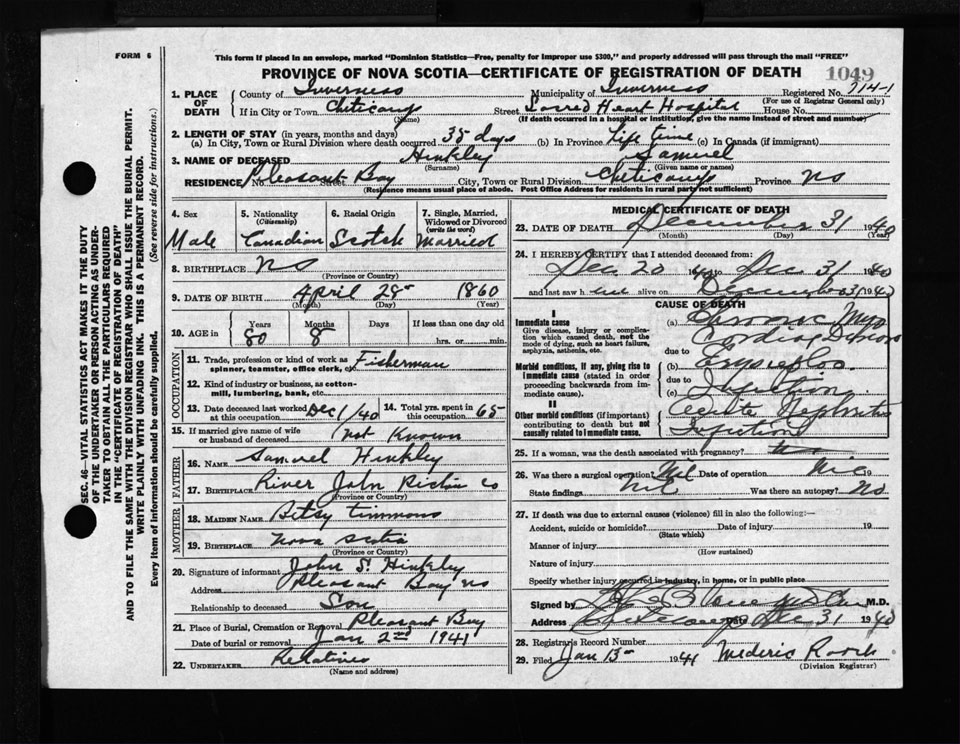 FORM 6
This form if placed in an envelope, marked "Dominion Statistics—Free, penalty for improper use $300," and properly addressed will pass through the mail "FREE"
PROVINCE OF NOVA SCOTIA—CERTIFICATE OF REGISTRATION OF DEATH 1049
SEC. 46—VITAL STATISTICS ACT MAKES IT THE DUTY
OF THE UNDERTAKER OR PERSON ACTING AS UNDER-
TAKER TO OBTAIN ALL THE PARTICULARS REQUIRED
IN THE "CERTIFICATE OF REGISTRATION OF DEATH"
AND TO FILE THE SAME WITH THE DIVISION REGISTRAR WHO SHALL ISSUE THE BURIAL PERMIT.
WRITE PLAINLY WITH UNFADING INK. THIS IS A PERMANENT RECORD.
Every item of information should be carefully supplied. (See reverse side for instructions.)
1. PLACE OF DEATH County of Inverness Municipality of Inverness Registered No. 714-1
(For use of Registrar General only)
If in City or Town Cheticamp Street Sacred Heart Hospital House No.
(Name) (If death occurred in a hospital or institution, give the name instead of street and number)
2. LENGTH OF STAY (in years, months and days)
(a) In City, Town or Rural Division where death occurred 35 days (b) In Province Life time (c) In Canada (if immigrant)
3. NAME OF DECEASED Hinkley Samuel
(Surname) (Given name or names)
RESIDENCE No. Pleasant Bay Street City, Town or Rural Division Cheticamp Province NS
(Residence means usual place of abode. Post Office Address for residents in rural parts not sufficient)
4. Sex 5. Nationality (Citizenship) 6. Racial Origin 7. Single, Married, Widowed or Divorced (write the word)
Male Canadian Scotch Married
8. BIRTHPLACE NS
(Province or Country)
9. DATE OF BIRTH April 28 1860
(Month) (Day) (Year)
10. AGE in Years Months Days If less than one day old
80 8 hrs. or min.
OCCUPATION
11. Trade, profession or kind of work as spinner, teamster, office clerk, etc. Fisherman
12. Kind of industry or business, as cotton-mill, lumbering, bank, etc.
13. Date deceased last worked at this occupation Dec 1/40 14. Total yrs. spent in this occupation 65
15. If married give name of wife or husband of deceased not Known
FATHER
16. NAME Samuel Hinkley
17. BIRTHPLACE River John Pictou Co
(Province or Country)
MOTHER
18. MAIDEN NAME Betsy Timmons
19. BIRTHPLACE Nova Scotia
(Province or Country)
20. Signature of informant John S. Hinkley
Address Pleasant Bay NS
Relationship to deceased Son
21. Place of Burial, Cremation or Removal Pleasant Bay
Date of burial or removal Jan 2nd 1941
22. UNDERTAKER Relatives
(Name and address)
MEDICAL CERTIFICATE OF DEATH
23. DATE OF DEATH December 31 1940
(Month) (Day) (Year)
24. I HEREBY CERTIFY that I attended deceased from:
Dec 20 1940 to Dec 31 1940
and last saw h im alive on December 31 1940
CAUSE OF DEATH
I
Immediate cause (a) Chronic Myo
Give disease, injury or complication which caused death, not the mode of dying, such as heart failure, asphyxia, asthenia, etc.
due to
Morbid conditions, if any, giving rise to immediate cause (stated in order proceeding backwards from immediate cause).
(b) Erysipelas
due to
(c) Infection
II
Other morbid conditions (if important) contributing to death but not causally related to immediate cause.
Acute Nephritis
Infection
25. If a woman, was the death associated with pregnancy? No
26. Was there a surgical operation? Nil Date of operation Nil 19
State findings Nil Was there an autopsy? No
27. If death was due to external causes (violence) fill in also the following:—
Accident, suicide or homicide? Date of injury 19
(State which)
Manner of injury
(How sustained)
Nature of injury
Specify whether injury occurred in industry, in home, or in public place
Signed by M.D.
Address Cheticamp Date Dec 31 1940
28. Registrar's Record Number
29. Filed Jan 13 1941 Mederic Roach
(Division Registrar)